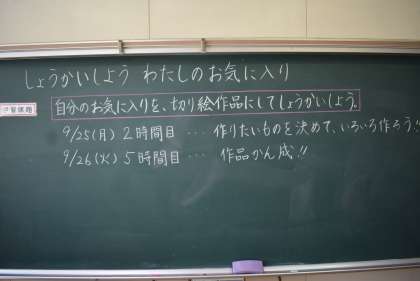 しょうかいしよう わたしのお気に入り
学習課題
自分のお気に入りを、切り絵作品にしてしょうかいしよう。
9/25(月) 2時間目 … 作りたいものを決めて、いろいろ作ろう!!
9/26(火) 5時間目 … 作品かん成!!